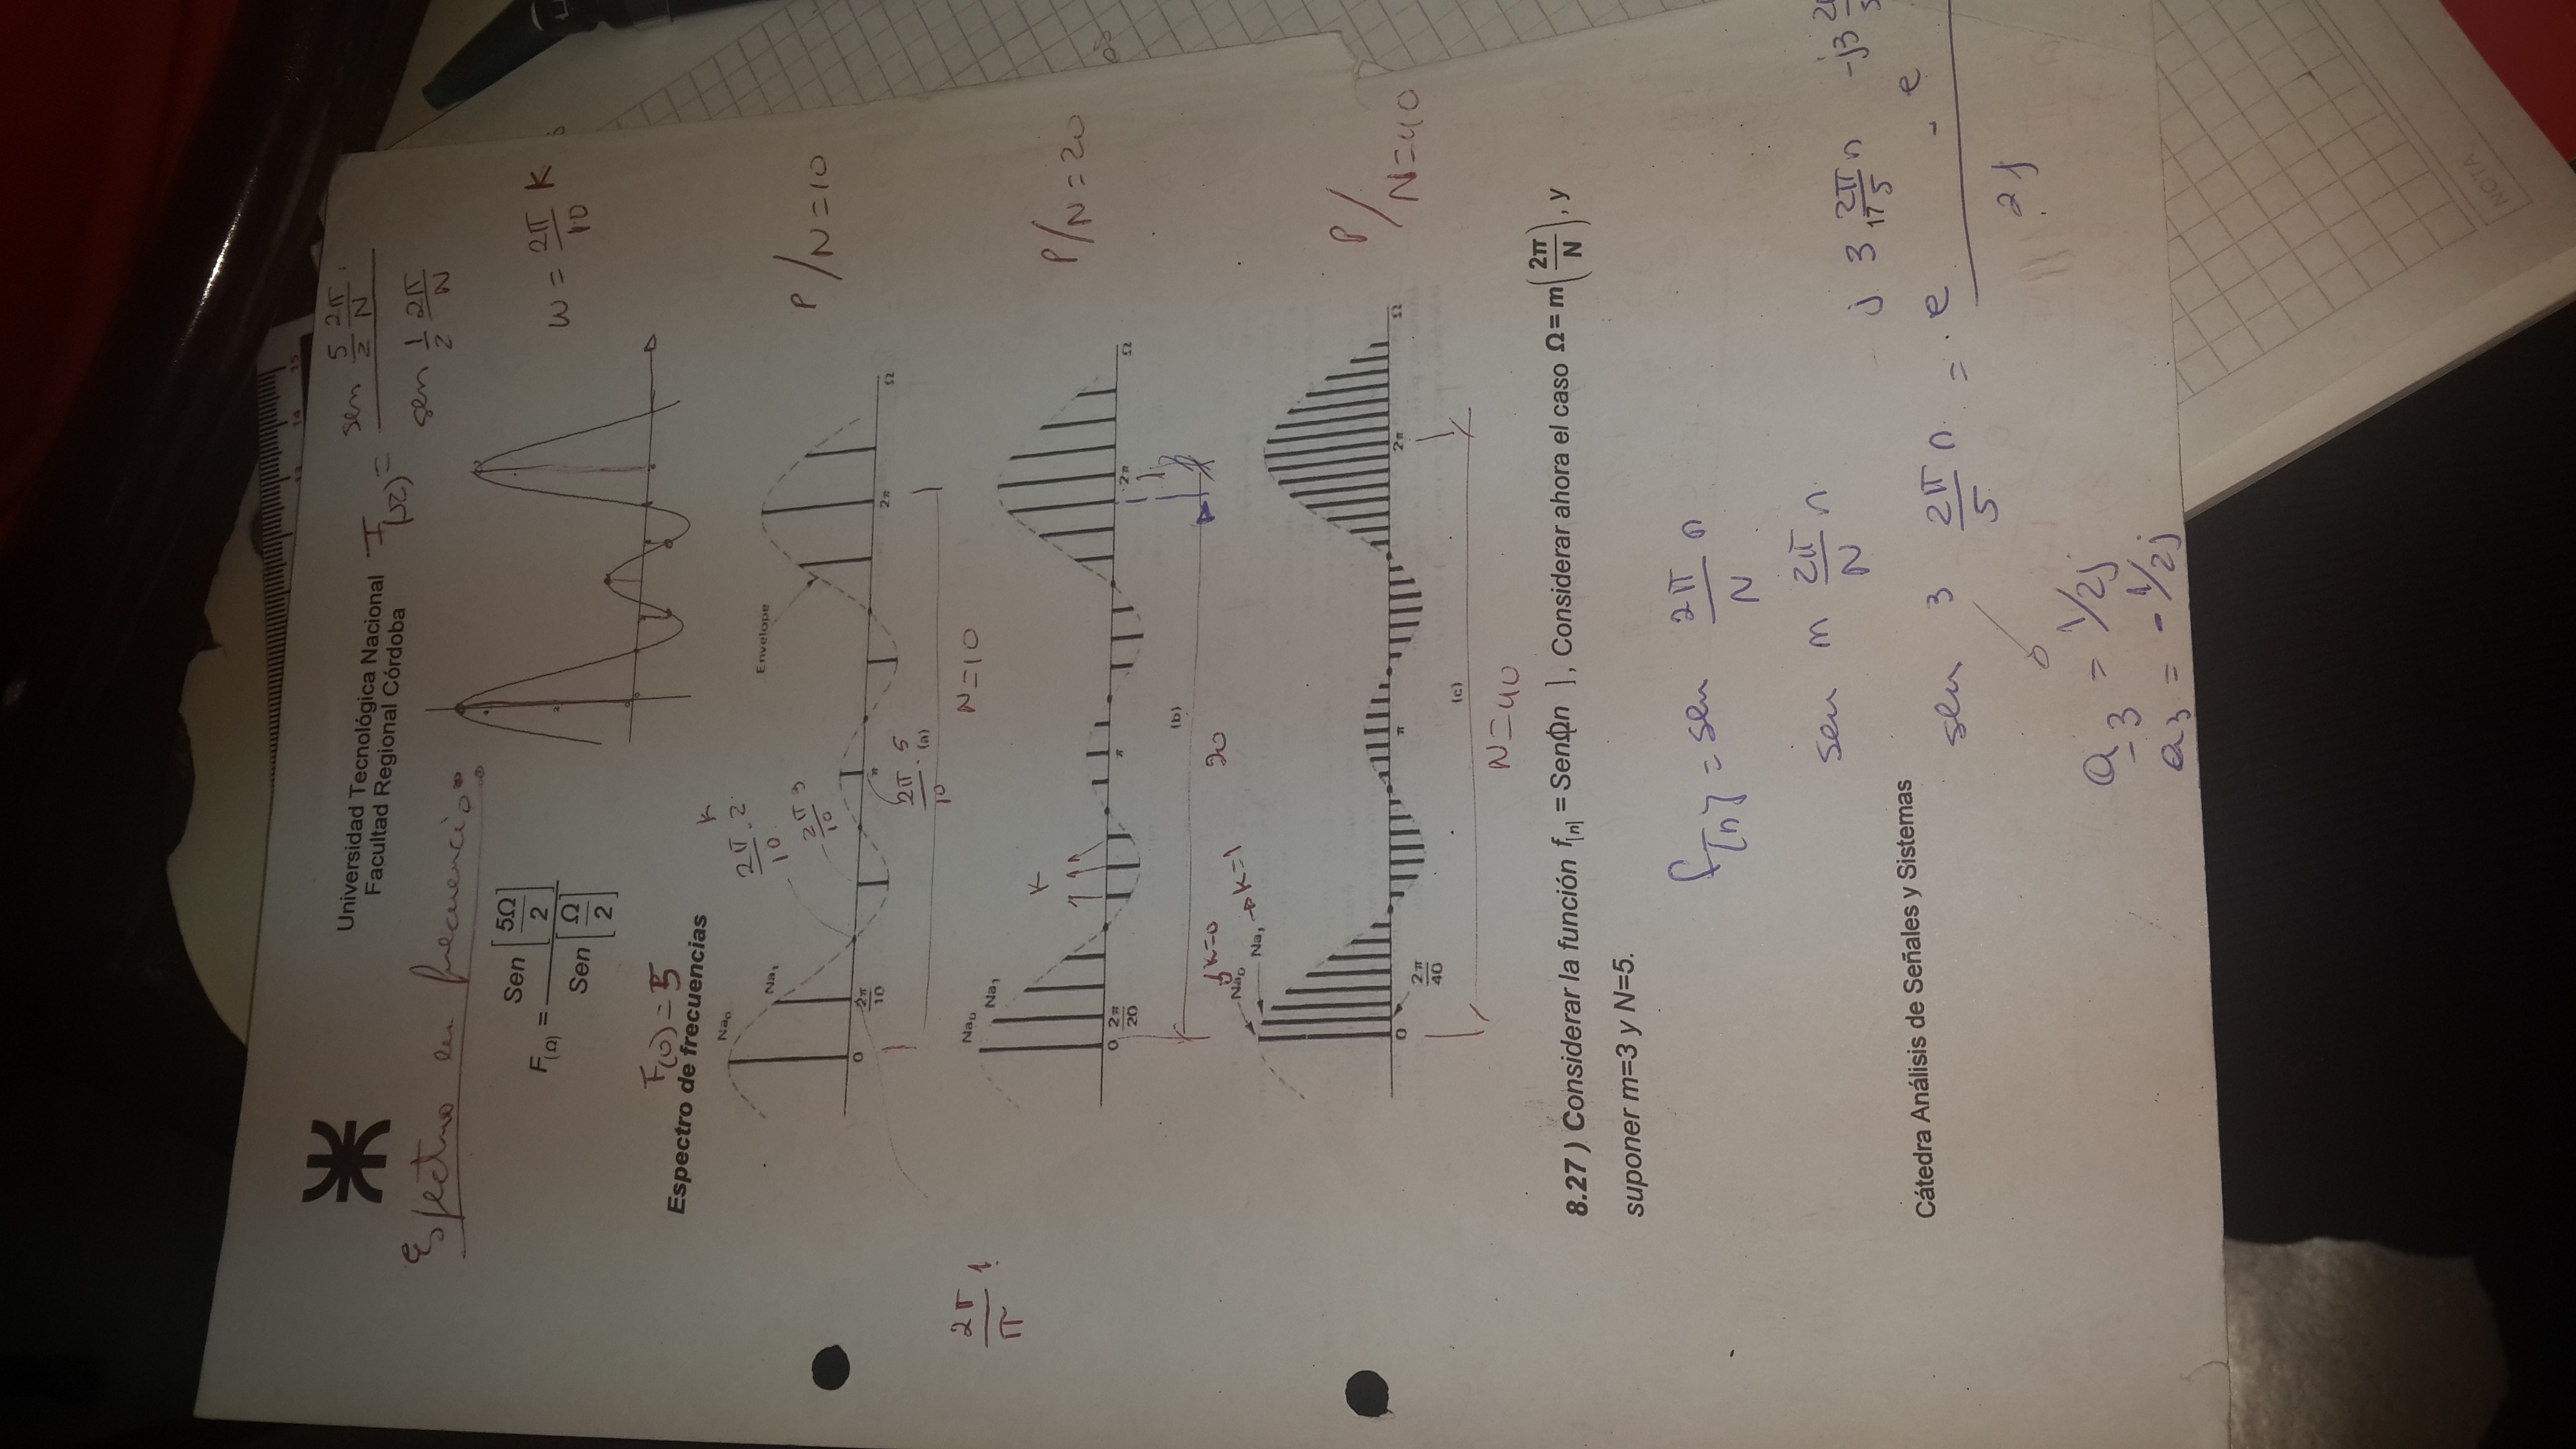 13 14 15
Universidad Tecnológica Nacional
Facultad Regional Córdoba
F(Ω) = sen 5/2 2π/N / sen 1/2 2π/N
Espectro en frecuencia:
F(Ω) = Sen [5Ω/2] / Sen [Ω/2]
w = 2π/10 K
F(0) = 5
Espectro de frecuencias
K
Na₀
2π/10 . 2
Na₁
Envelope
2π/10 3
P/N=10
0 2π/10 π 2π Ω
2π/10 . 5
(a)
N=10
2π/π 1
Na₀
Na₁
K
P/N=20
0 2π/20 π 2π Ω
(b)
20
K=0
Na₀
Na₁ → K=1
P/N=40
0 2π/40 π 2π Ω
(c)
N=40
8.27 ) Considerar la función f[n] = Sen[Ωn ] , Considerar ahora el caso Ω = m(2π/N) , y
suponer m=3 y N=5.
f[n] = sen 2π/N n
sen m 2π/N n
17
Cátedra Análisis de Señales y Sistemas
sen 3 2π/5 n = e^(j 3 2π/5 n) - e^(-j3 2π/5 / 2j
a₋₃ = 1/2j
a₃ = -1/2j
NOTA